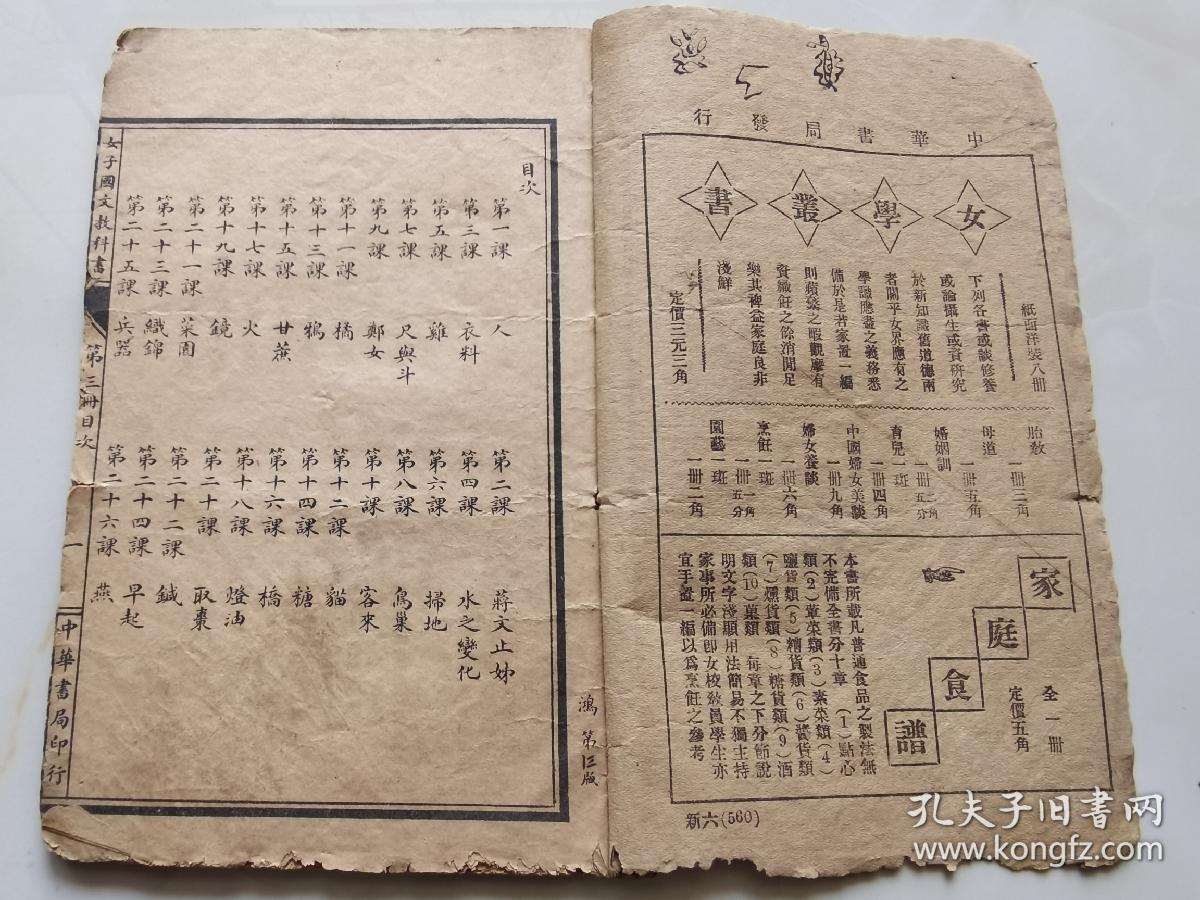 中華書局發行
女學叢書
紙面洋裝八冊
下列各書或談修養
或論攝生或資研究
於新知識舊道德兩
者關乎女界應有之
學識應盡之義務悉
備於是若家置一編
則蘋蘩之暇觀摩有
資織飪之餘消閒足
樂其裨益家庭良非
淺鮮
定價三元三角
胎教 一冊三角
母道 一冊五角
婚姻訓 一冊二角五分
育兒一班 一冊四角
中國婦女美談 一冊九角
婦女養談 一冊六角
烹飪一班 一冊一角五分
園藝一班 一冊二角
家庭食譜
全一冊
定價五角
本書所載凡普通食品之製法無
不完備全書分十章 (1)點心
類(2)葷菜類(3)素菜類(4)
鹽貨類(5)糟貨類(6)醬貨類
(7)燻貨類(8)糖貨類(9)酒
類(10)菓類 每章之下分節說
明文字淺顯用法簡易不獨主持
家事所必備即女校教員學生亦
宜手置一編以爲烹飪之參考
新六(560)
鴻 第 版
目次
第一課 人 第二課 蔣文止姊
第三課 衣料 第四課 水之變化
第五課 雞 第六課 掃地
第七課 尺與斗 第八課 鳥巢
第九課 鄭女 第十課 客來
第十一課 橘 第十二課 貓
第十三課 鴉 第十四課 糖
第十五課 甘蔗 第十六課 橋
第十七課 火 第十八課 燈油
第十九課 鏡 第二十課 取棗
第二十一課 菜園 第二十二課 鍼
第二十三課 織錦 第二十四課 早起
第二十五課 兵器 第二十六課 燕
女子國文教科書
第三冊目次
一
中華書局印行
孔夫子旧书网
www.kongfz.com